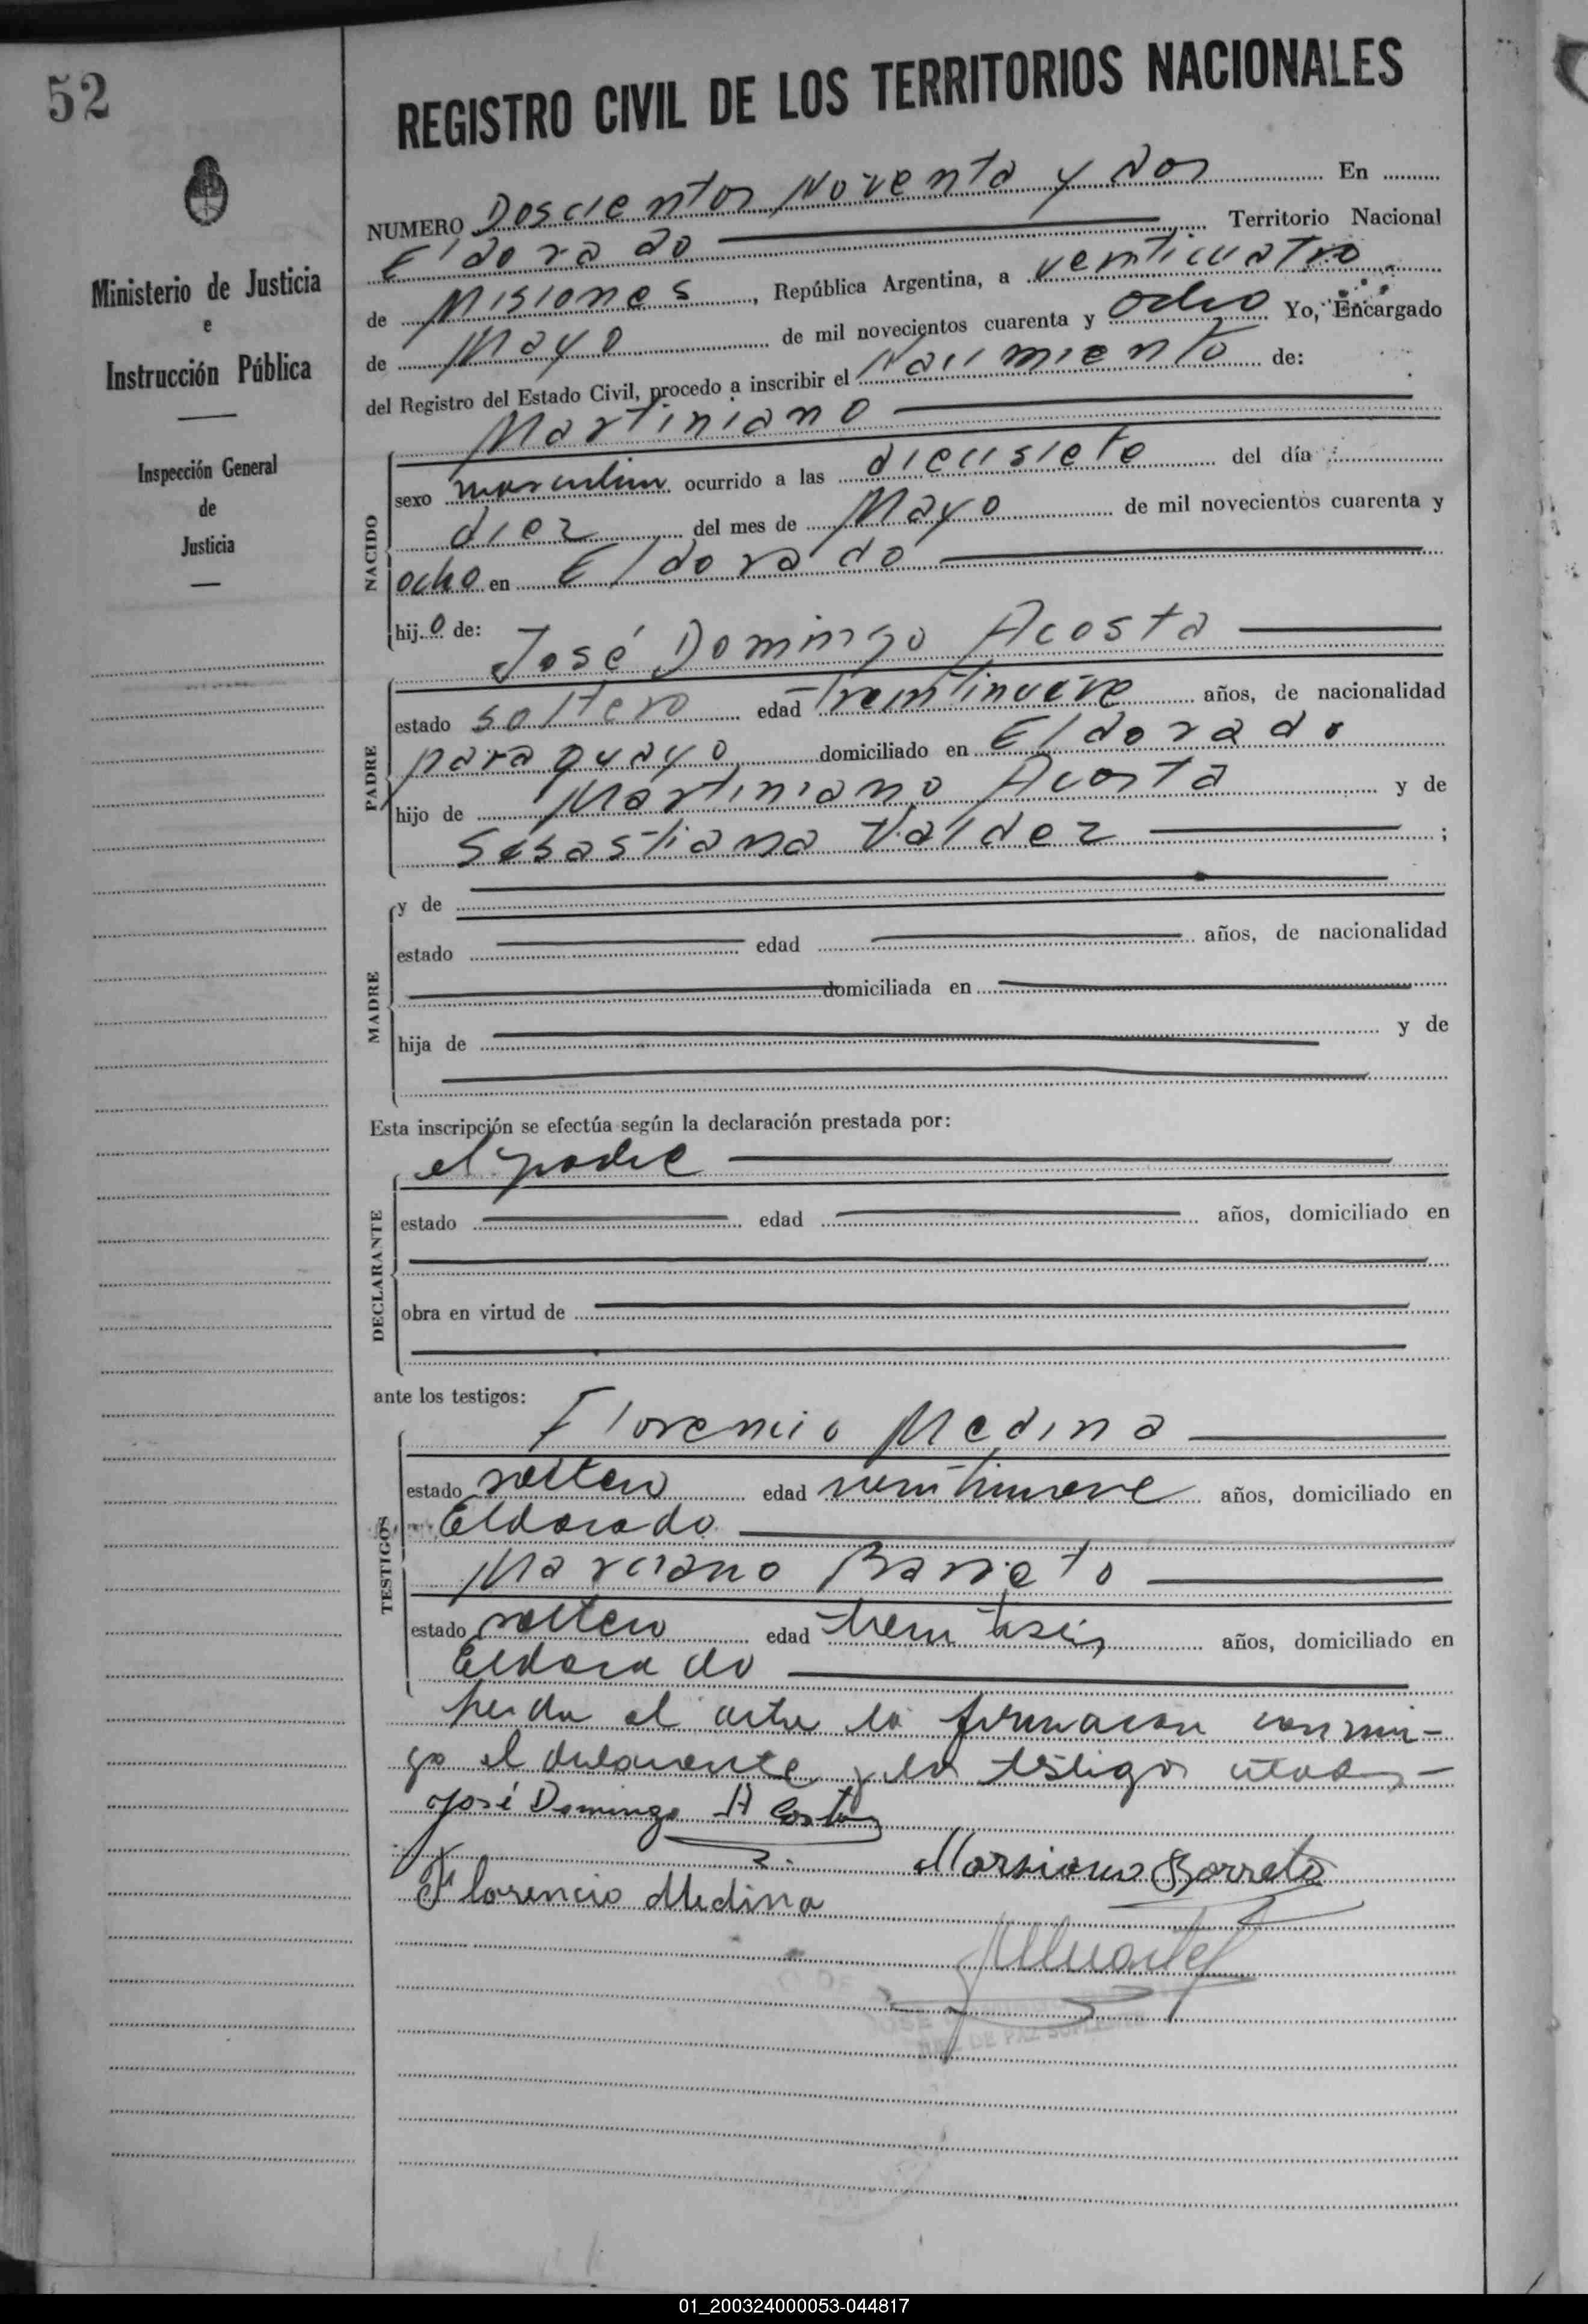 52
Ministerio de Justicia
e
Instrucción Pública
Inspección General
de
Justicia
REGISTRO CIVIL DE LOS TERRITORIOS NACIONALES
NUMERO Doscientos Noventa y dos En
Eldorado Territorio Nacional
de Misiones, República Argentina, a venticuatro
de Mayo de mil novecientos cuarenta y ocho Yo, Encargado
del Registro del Estado Civil, procedo a inscribir el Nacimiento de:
Martiniano
NACIDO
sexo masculino ocurrido a las diecisiete del día
diez del mes de Mayo de mil novecientos cuarenta y
ocho en Eldorado
hijo de:
José Domingo Acosta
PADRE
estado soltero edad treintinueve años, de nacionalidad
paraguayo domiciliado en Eldorado
hijo de Martiniano Acosta y de
Sebastiana Valdez ;
MADRE
y de
estado edad años, de nacionalidad
domiciliada en
hija de y de
Esta inscripción se efectúa según la declaración prestada por:
el padre
DECLARANTE
estado edad años, domiciliado en
obra en virtud de
ante los testigos:
Florencio Medina
TESTIGOS
estado soltero edad ventinueve años, domiciliado en
Eldorado
Marciano Barreto
estado soltero edad treintiseis años, domiciliado en
Eldorado
el acta la firmaron conmi-
go el declarante y los testigos citados-
José Domingo Acosta
Marsiano Barreto
Florencio Medina
JOSE
JUEZ DE PAZ SUPLENTE
01_200324000053-044817